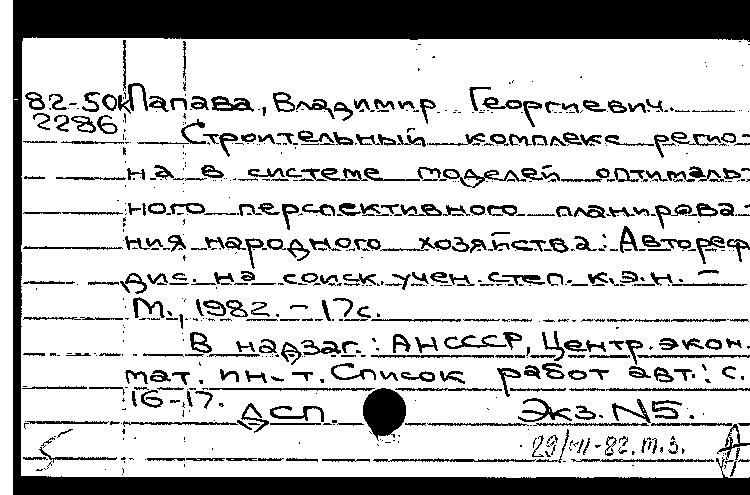 82-50к Папава, Владимир Георгиевич.
2286
Строительный комплекс регио-
на в системе моделей оптималь-
ного перспективного планирова-
ния народного хозяйства: Автореф
дис. на соиск. учен. степ. к.э.н. –
М., 1982. – 17с.
В надзаг.: АНСССР, Центр. экон.
мат. ин-т. Список работ авт.: с.
16-17.
ДСП. Экз. N5.
29/VII-82. т.з.